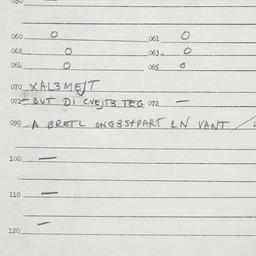 060 0 061 0
062 0 063 0
064 0 065 0
070 XAL3MEJT
071 - BUT D1 CVEJT3.TEG 072 -
090 A BRETL ONG35+PART 1N VANT /
100 -
110 -
120 -